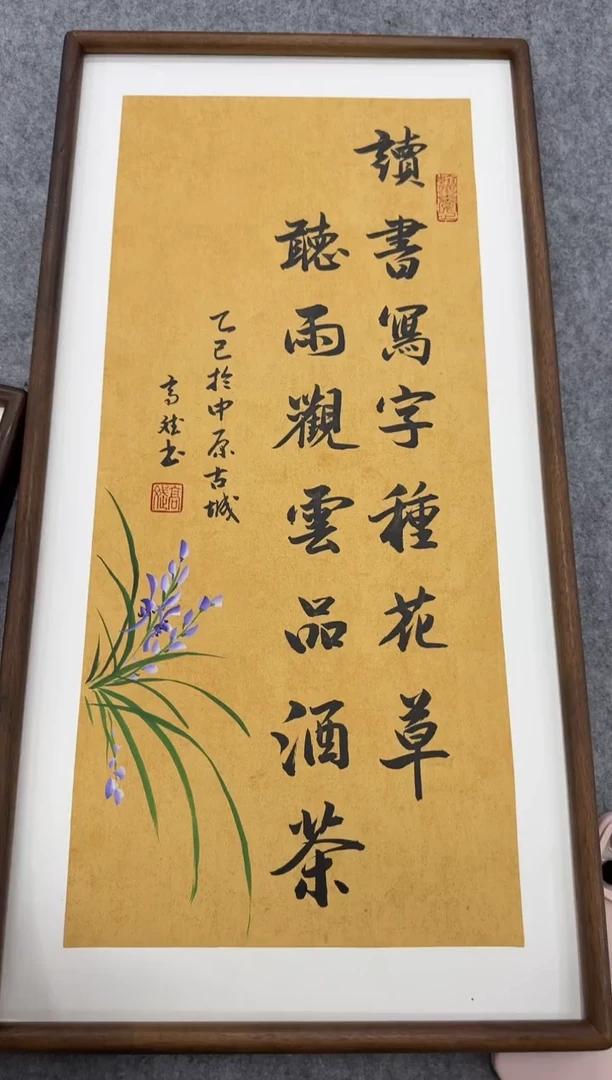 讀書寫字種花草
聽雨觀雲品酒茶
乙巳於中原古城
高發書